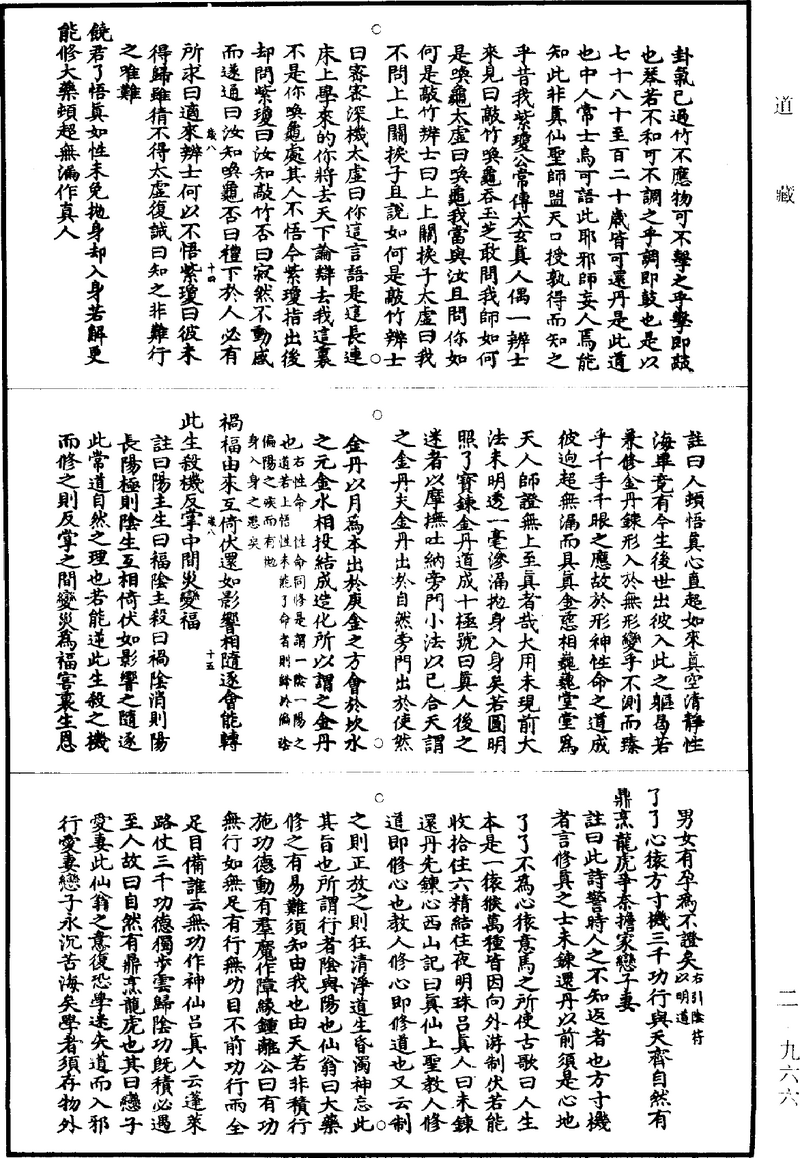 道藏
二·九六六
卦氣已過竹不應物可不擊之乎擊即鼓
也琴若不和可不調之乎調即鼓也是以
七十八十至百二十歲皆可還丹是此道
也中人常士焉可語此耶邪師妄人焉能
知此非真仙聖師盟天口授孰得而知之
乎昔我紫瓊公常傳太玄真人偶一辨士
來見曰敲竹喚龜吞玉芝敢問我師如何
是喚龜太虛曰喚龜我當與汝且問你如
何是敲竹辨士曰上上關捩子太虛曰我
不問上上關捩子且說如何是敲竹辨士
曰審審深機太虛曰你這言語是這長連
床上學來的你將去天下論辯去我這裏
不是你喚龜處其人不悟今紫瓊指出後
却問紫瓊曰汝知敲竹否曰寂然不動感
而遂通曰汝知喚龜否曰禮下於人必有
歲八 十四
所求曰適來辨士何以不悟紫瓊曰彼未
得歸雖猜不得太虛復誠曰知之非難行
之唯難
饒君了悟真如性未免拋身却入身若解更
能修大藥頓超無漏作真人
註曰人頓悟真心直超如來真空清靜性
海畢竟有今生後世出彼入此之軀曷若
兼修金丹鍊形入於無形變乎不測而臻
乎千手千眼之應故於形神性命之道成
彼迥超無漏而具真金慈相巍巍堂堂為
天人師證無上至真者哉大用未現前大
法未明透一毫滲漏拋身入身矣若圓明
照了寶鍊金丹道成十極號曰真人後之
迷者以摩撫吐納旁門小法以已合天謂
之金丹夫金丹出於自然旁門出於使然
金丹以月為本出於庚金之方會於坎水
之元金水相投結成造化所以謂之金丹
右性命 性命同修是謂一陰一陽之
也道若上悟性未能了命者則歸於偏陰
偏陽之疾而有拋
身入身之患矣
禍福由來互倚伏還如影響相隨逐會能轉
歲八 十五
此生殺機反掌中間災變福
註曰陽主生曰福陰主殺曰禍陰消則陽
長陽極則陰生互相倚伏如影響之隨逐
此常道自然之理也若能逆此生殺之機
而修之則反掌之間變災為福害裏生恩
男女有孕為不證矣 右引陰符 以明道
了了心猿方寸機三千功行與天齊自然有
鼎烹龍虎爭柰擔家戀子妻
註曰此詩警時人之不知返者也方寸機
者言修真之士未鍊還丹以前須是心地
了了不為心猿意馬之所使古歌曰人生
本是一猿猴萬種皆因向外游制伏若能
收拾住六精結住夜明珠呂真人曰未鍊
還丹先鍊心西山記曰真仙上聖教人修
道即修心也教人修心即修道也又云制
之則正放之則狂清淨道生昏濁神忘此
其旨也所謂行者陰與陽也仙翁曰大藥
修之有易難須知由我也由天若非積行
施功德動有羣魔作障緣鍾離公曰有功
無行如無足有行無功目不前功行兩全
足目備誰云無功作神仙呂真人云蓬萊
路仗三千功德獨步雲歸陰功既積必遇
至人故曰自然有鼎烹龍虎也其曰戀子
愛妻此仙翁之意復恐學迷失道而入邪
行愛妻戀子永沉苦海矣學者須存物外